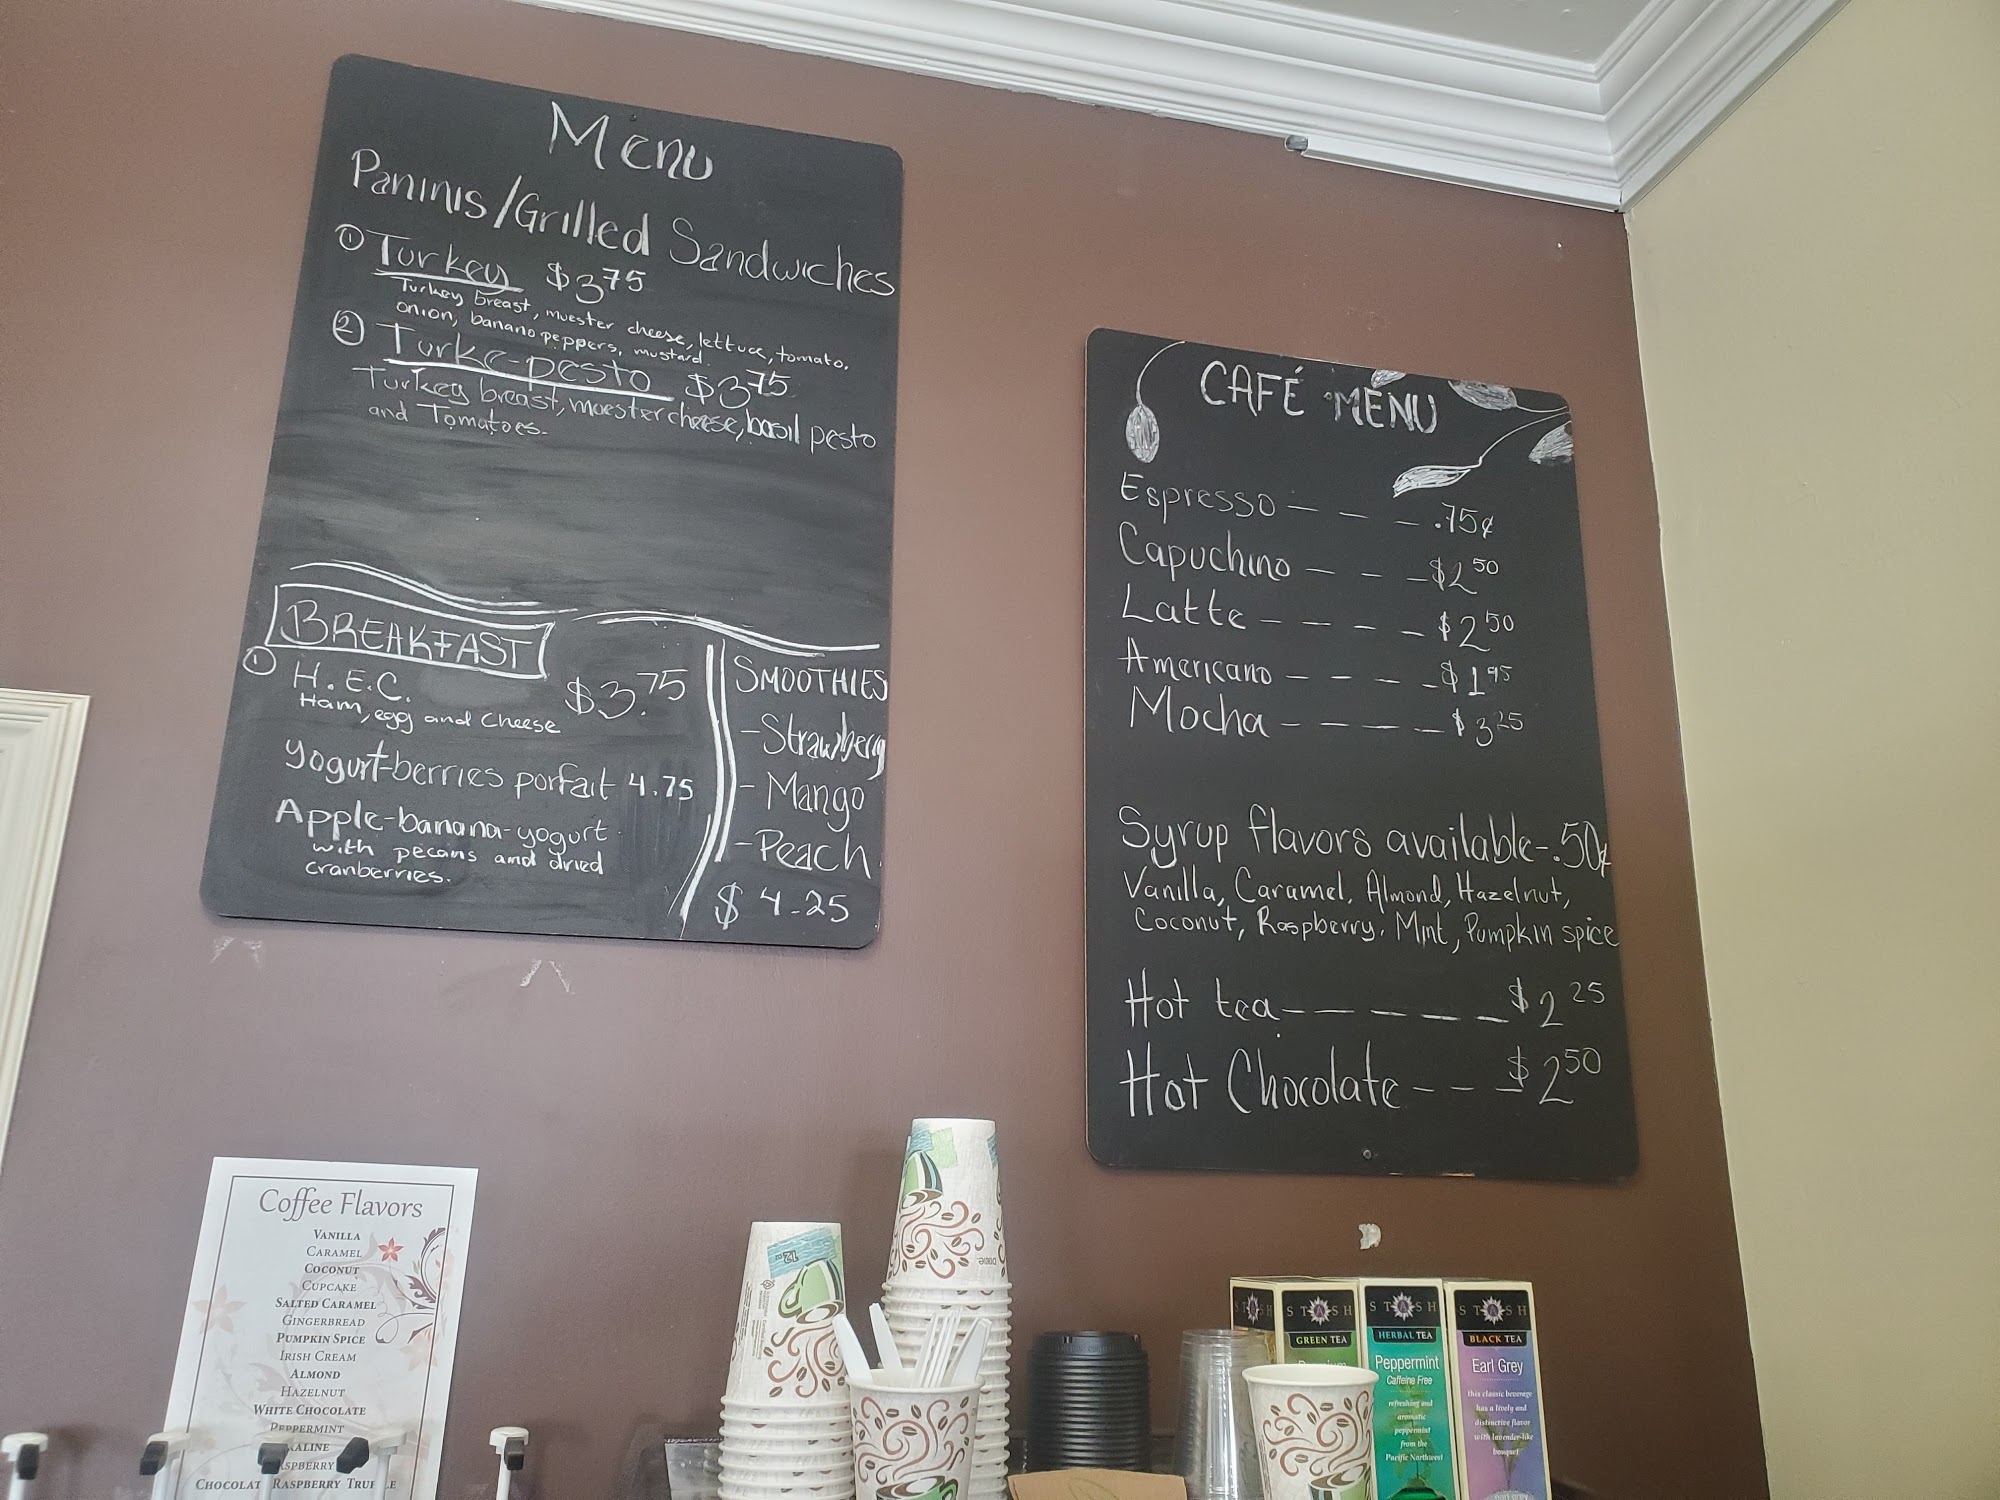 Menu
Paninis/Grilled Sandwiches
① Turkey $3.75
Turkey breast, muester cheese, lettuce, tomato,
onion, banano peppers, mustard.
② Turke-pesto $3.75
Turkey breast, muester cheese, basil pesto
and Tomatoes.
BREAKFAST
① H.E.C. $3.75
Ham, egg and Cheese
Yogurt-berries porfait 4.75
Apple-banana-yogurt
with pecans and dried
cranberries.
SMOOTHIES
-Strawberry
- Mango
-Peach
$ 4-25
CAFÉ MENU
Espresso — — — .75¢
Capuchino — — — $2.50
Latte — — — — $2.50
Americano — — — — $1.95
Mocha — — — — $3.25
Syrup flavors available-.50¢
Vanilla, Caramel, Almond, Hazelnut,
Coconut, Raspberry, Mint, Pumpkin spice
Hot tea — — — — — $2.25
Hot Chocolate - - — $2.50
Coffee Flavors
VANILLA
CARAMEL
COCONUT
CUPCAKE
SALTED CARAMEL
GINGERBREAD
PUMPKIN SPICE
IRISH CREAM
ALMOND
HAZELNUT
WHITE CHOCOLATE
PEPPERMINT
RASPBERRY
12 oz
Dixie
STASH
STASH
GREEN TEA
STASH
HERBAL TEA
Peppermint
Caffeine Free
refreshing and
aromatic
peppermint
from the
Pacific Northwest
STASH
BLACK TEA
Earl Grey
this classic beverage
has a lively and
distinctive flavor
with lavender-like
bouquet